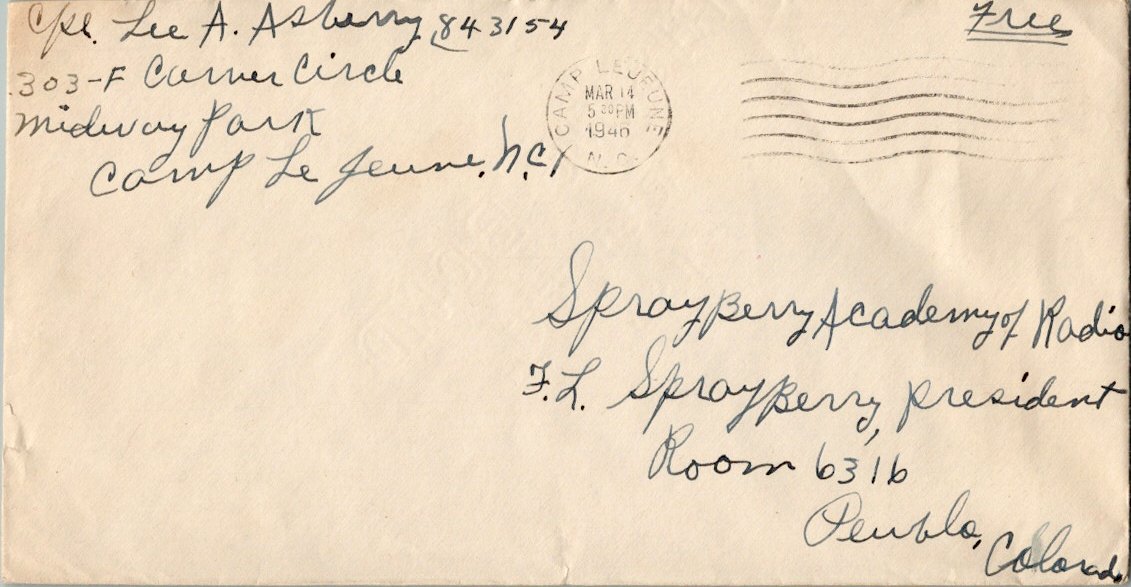 Cpl. Lee A. Asberry 843154
Free
303-F Carver Circle
Midway Park
Camp Le Jeune, N.C.
CAMP LEJEUNE
MAR 14
5 00 PM
1946
N. C.
SprayBerry Academy of Radio
F.L. SprayBerry, President
Room 6316
Peublo, Colorado